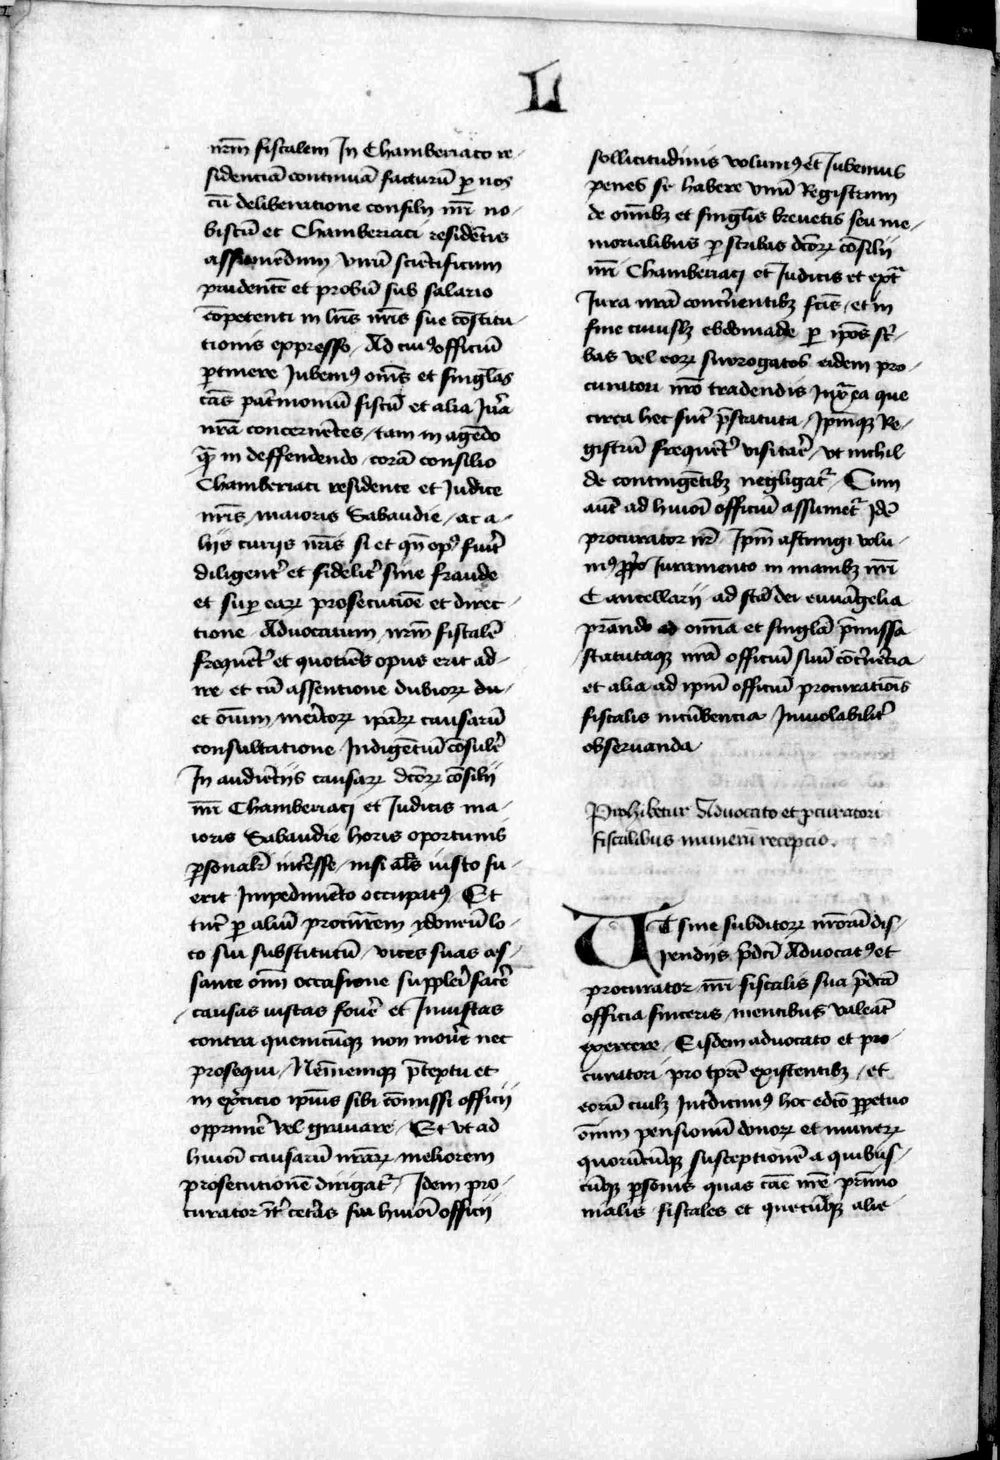 L
nr̄m fiscalem In Chamberiaco re-
sidenciā continuā facturū p nos
cū deliberatione consilii nr̄i no-
biscū et Chamberiaci residētis
assumēdum vnū sciētificum
prudentē et probū sub salario
cōpetenti in lr̄is nr̄is sue cōstitu
tionis expresso / Ad cui9 officiū
ptinere Jubem9 om̄s et singlas
cās pat̓moniū fiscū et alia Jur̄a
nr̄a concernētes / tam in agēdo
qƷ in deffendendo / corā consilio
Chamberiaci residente et Judice
nr̄is / maioris Sabaudie / ac a-
liis curiis nr̄is si et qn̄ op9 fuit̓
diligent̓ et fidelit̓ sine fraude
et sup earꝝ prosecutiōe et direc-
tione / Aduocatum nr̄m fiscalē
frequēt̓ et quotiēs opus erit ad-
ire et cū assertione dubiorꝝ du-
et om̄ium meritorꝝ ipārꝝ causarū
consultatione Indigētiū cōsuler̓
In audiētiis causarꝝ dc̄orꝝ cōsilii
nr̄i Chamberiaci et Judicis ma-
ioris Sabaudie horis oportunis
psonalr̓ int̓esse / nisi als̄ iusto fu-
erit Impedimēto occupat9 / Et
tūc p aliū procur̄em ydoneū lo-
co sui substitutū / vices suas ces-
sante om̄i occasione suppler̓ facer̓
/ causas iustas fouer̓ et Iniustas
contra quemcūqꝫ non mouer̓ nec
prosequi / Nēminemqꝫ p̄textu et
in ex̓cicio ip̄ius sibi cōmissi officii
opprimer̓ vel grauare / Et vt ad
huiōi causarū nr̄arꝝ meliorem
prosecutionē dirigat̓ / Idem pro-
curator īt̓ cetās sui huiōi officii
sollicitudinis volum9 et Jubemus
penes se habere vnū Registrum
de om̄ibꝫ et singlis breuetis seu me-
morialibus p scribas dc̄orꝝ cōsilii
nr̄i Chamberiaci et Judicis et ext̄
Jura nr̄a conc̓nentibꝫ fc̄is / et in
fine cuiuslꝫ ebdomade p ip̄os sc̓-
bas vel eorꝝ surrogatos eidem pro-
curatori nr̄o tradendis Iuxta ea que
circa hec sūt p̄statuta / Ip̄mqꝫ Re-
gistrū frequēt̓ visitar̓ / vt nichil
de contingētibꝫ negligat̓ / Cum
autē ad huiōi officiū assumet̓ Idē
procurator nr̄ / Ip̄m astringi volu-
m9 pp̄o Juramento in manibꝫ nr̄i
Cancellarii ad sc̄a dei euuāgelia
pr̄ando ad om̄ia et singlā p̄missa
statutaqꝫ nr̄a officiū suū cōc̓nētia
et alia ad ip̄m officiū procurationis
fiscalis incūbencia / Inuiolabilit̓
obseruanda
Prohibetur Aduocato et pcuratori
fiscalibus munerū recepcio.
Ut sine subditorꝝ nr̄orū dis-
pendiis p̄dc̄i Aduocat9 et
procurator nr̄i fiscalis sua p̄dc̄ā
officia sinceris / mentibus valeāt
exercere / Eisdem aduocato et pro
curatori / pro tp̄re existentibꝫ / et
eorū cuilꝫ Int̓dicim9 hoc edc̄o ppetuo
om̄im pensionū donorꝝ et munerꝝ
quorūcūqꝫ susceptionē a quibus-
cūqꝫ psonis quas cāe nr̄e pr̄imo
niales / fiscales et quecūqꝫ alie